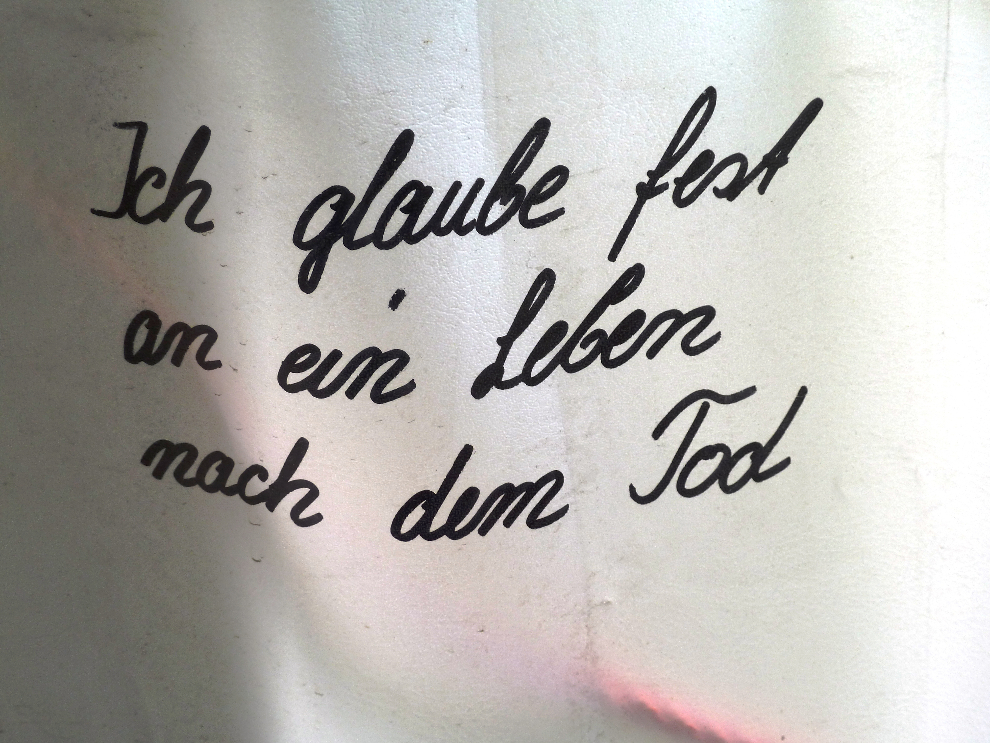 Ich glaube fest
an ein Leben
nach dem Tod